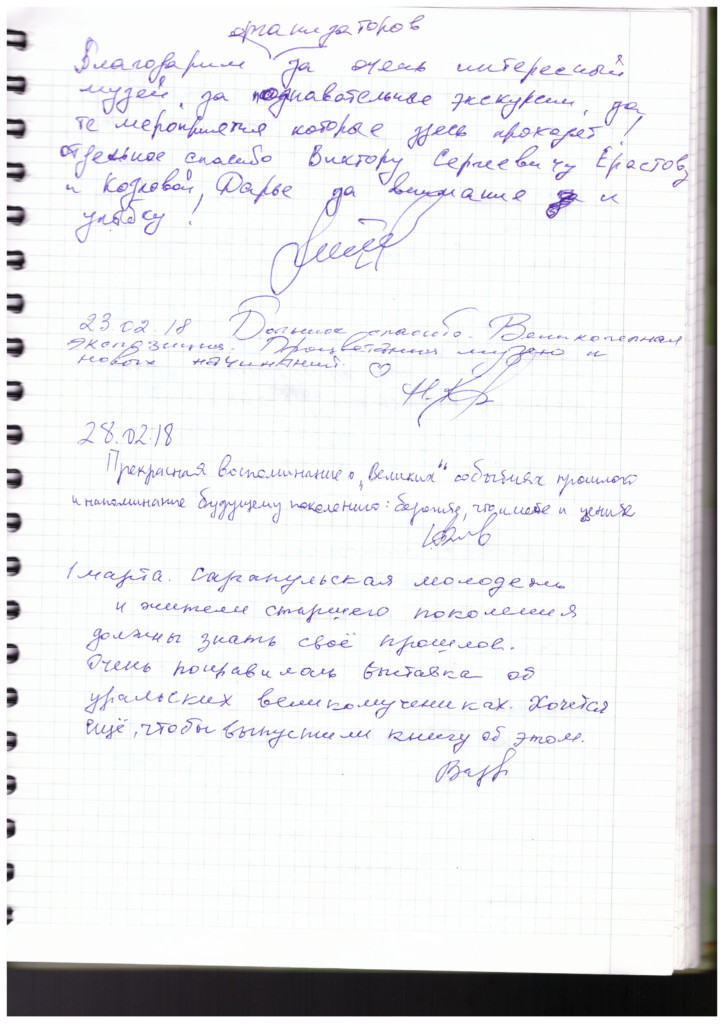 организаторов
Благодарим за очень интересный
музей, за познавательные экскурсии, за
те мероприятия которые здесь проходят!
отдельное спасибо Виктору Сергеевичу Ерастову
и Козловой Дарье за внимание и
улыбку!
23.02.18 Большое спасибо. Великолепная
экспозиция. Процветания музею и
новых начинаний. ♡
28.02.18
Прекрасная воспоминание о „Великих“ событиях прошлого
и напоминание будущему поколению: берегите, что имеете и цените
1 марта. Сарапульская молодежь
и жители старшего поколения
должны знать своё прошлое.
Очень понравилась выставка об
уральских великомучениках. Хочется
ещё, чтобы выпустили книгу об этом.